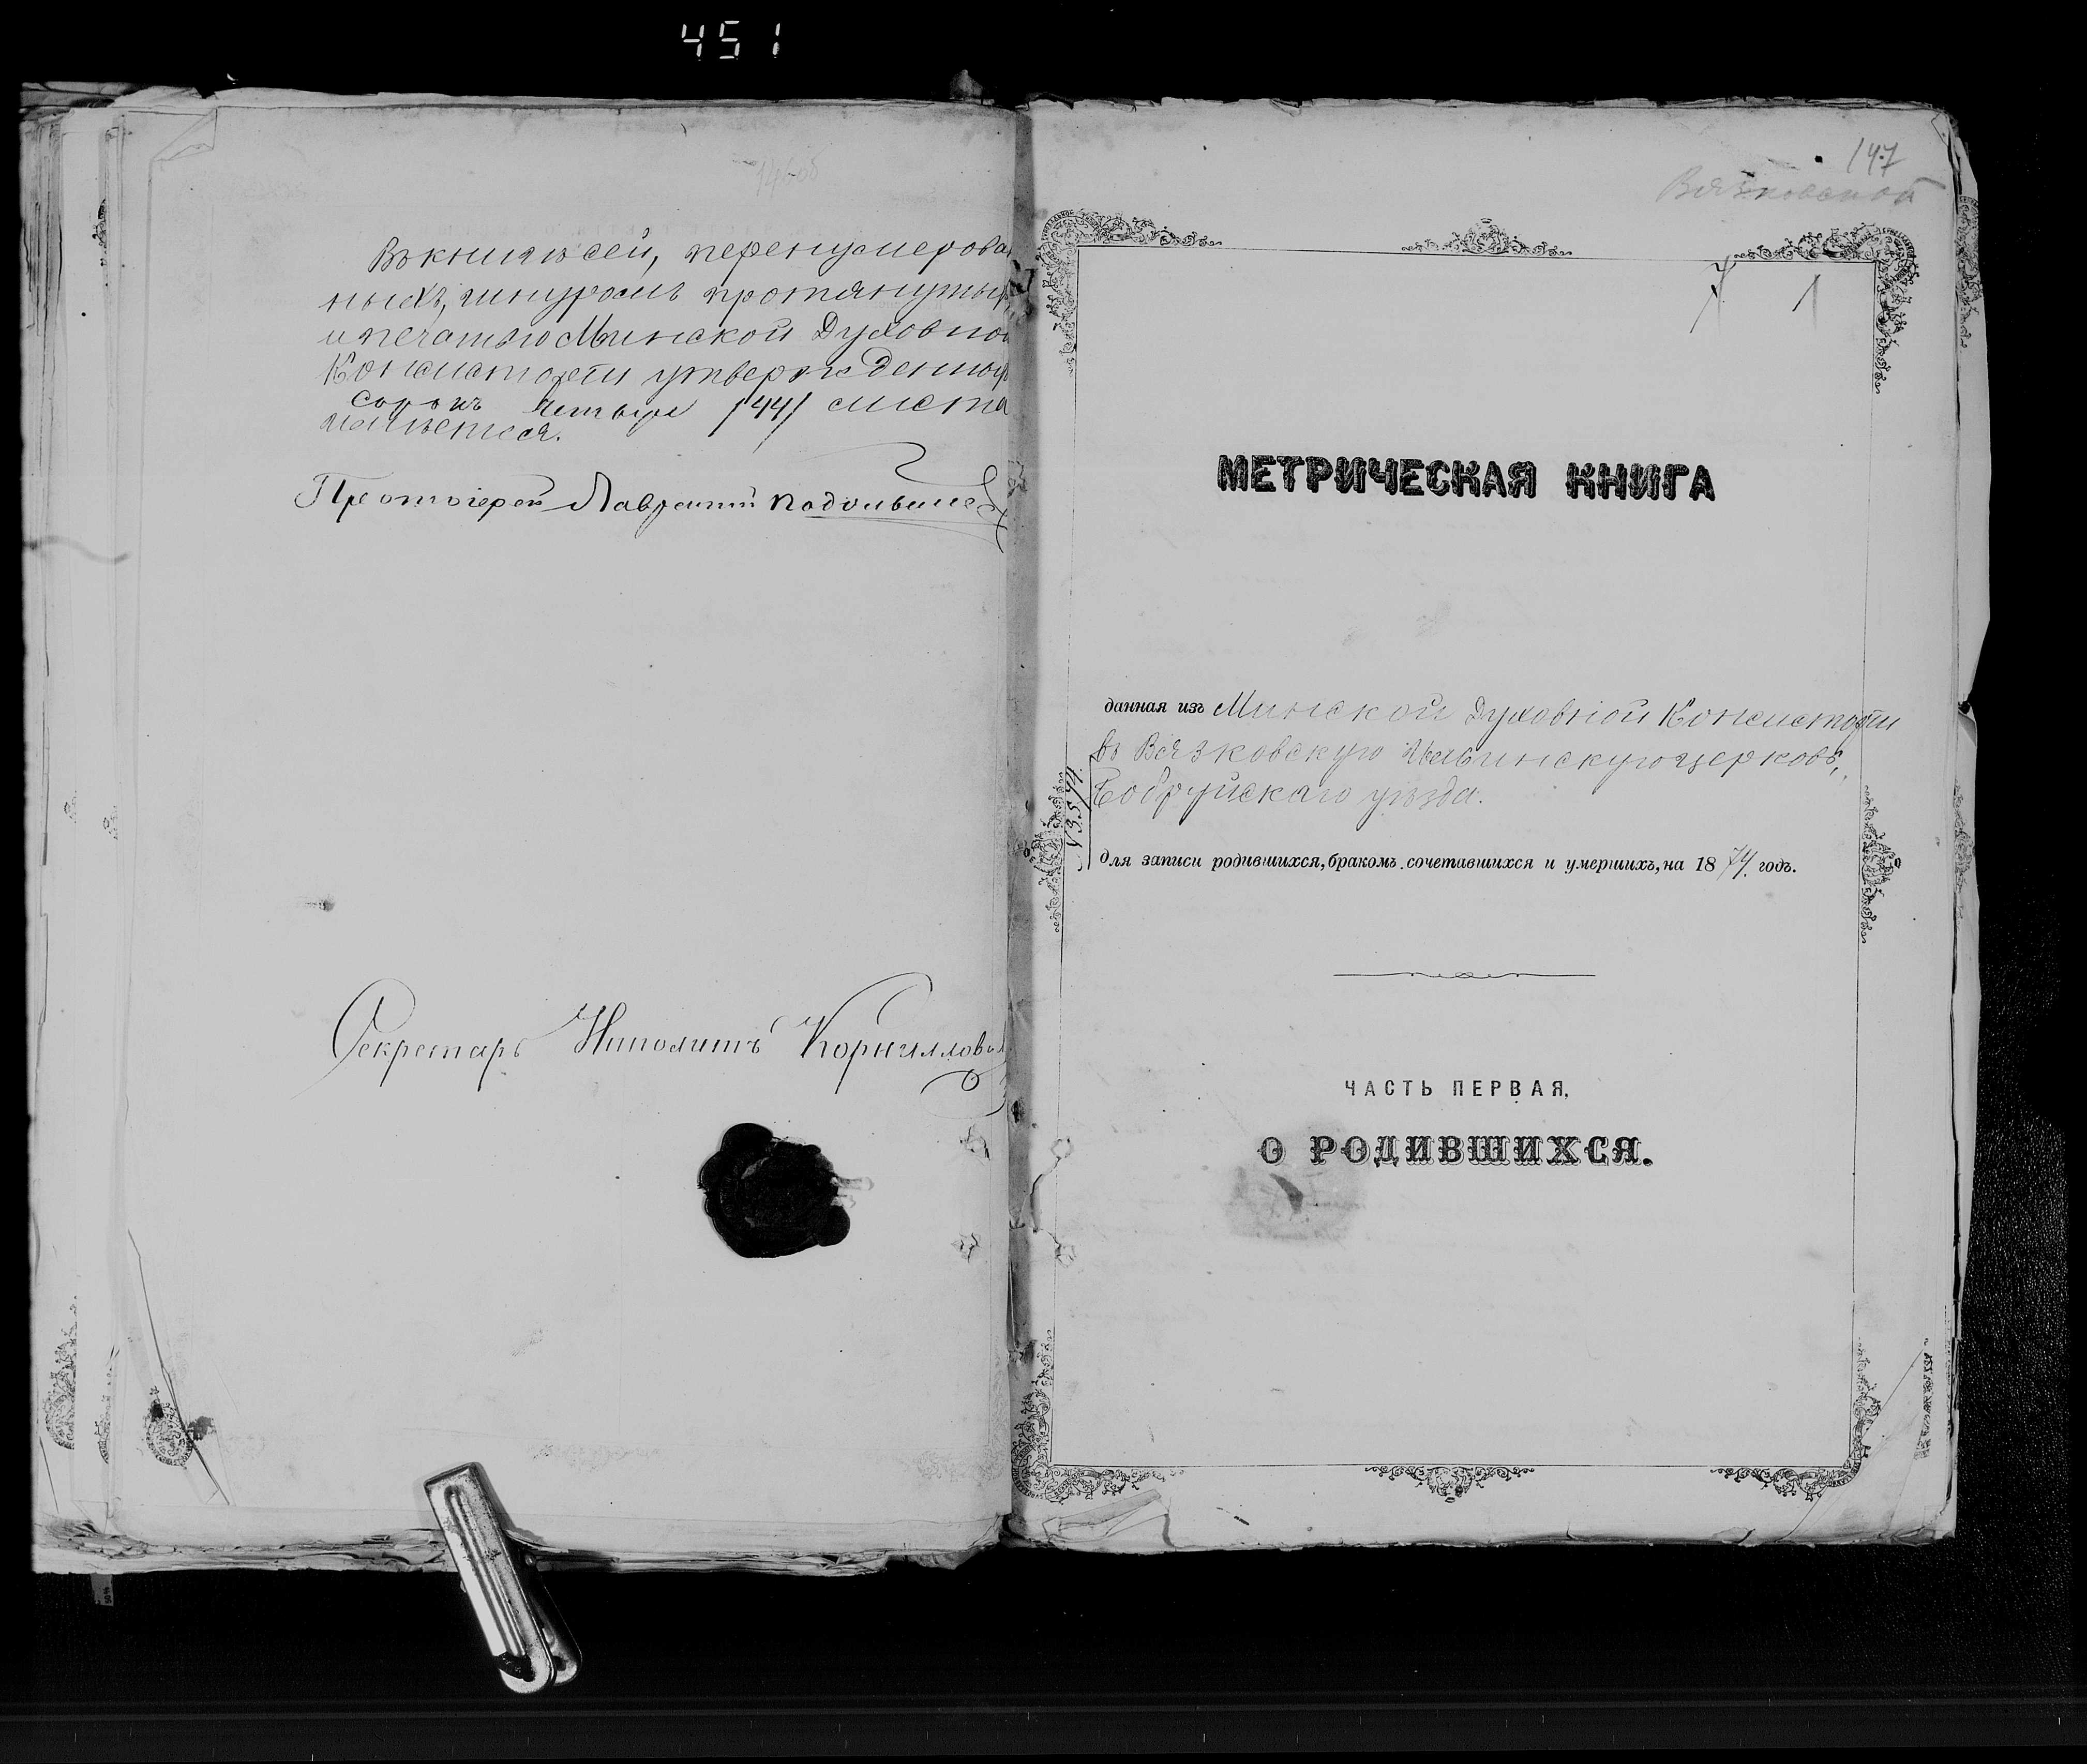 451
146об
Въ книгѣ сей, перенумерован
ныхъ, шнуромъ протянутыхъ
и печатью Минской Духовной
Консисторіи утвержденныхъ
сорокъ четыре /44/ листа
имѣется.
Протоіерей Лаврентій
Секретарь Иполитъ
147
Вязковской
7 1
МЕТРИЧЕСКАЯ КНИГА
данная изъ Минской Духовной Консисторіи
въ Вязковскую Ильинскую церковь,
Бобруйскаго уѣзда.
для записи родившихся, бракомъ сочетавшихся и умершихъ, на 1874. годъ.
ЧАСТЬ ПЕРВАЯ,
О РОДИВШИХСЯ.